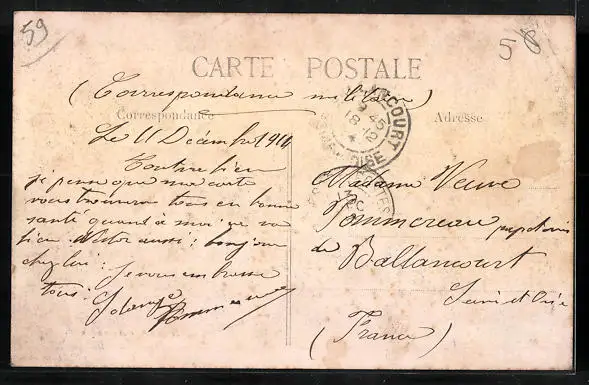 59
58
CARTE POSTALE
(Correspondance militaire)
Correspondance
Adresse
Le 11 Décembre 1914
Toutre bien
je pense que ma carte
vous trouvera tous en bonne
santé quand à moi va
bien. Victor aussi; bonjour
chez lui. Je vous embrasse
tous.
Madame Veuve
Pommereau
de Ballancourt
Seine et Oise
(France)
COURT
OISE
18 12